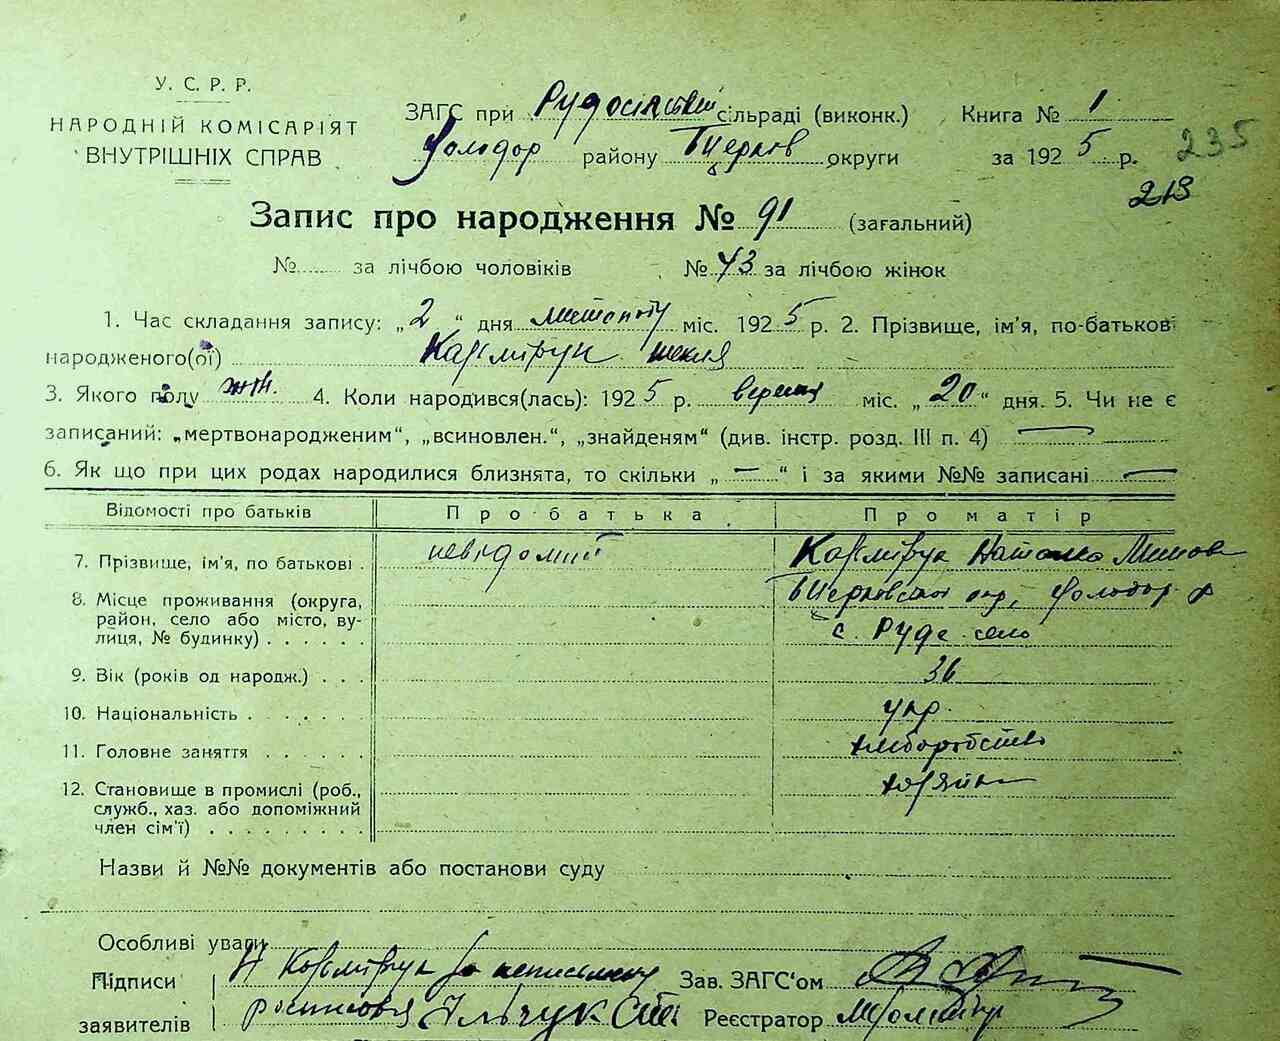 У. С. Р. Р.
НАРОДНІЙ КОМІСАРІЯТ
ВНУТРІШНІХ СПРАВ
ЗАГС при Рудосільській сільраді (виконк.)
Володар району БЦерков округи
Книга № 1
за 1925 р.
235
213
Запис про народження № 91 (загальний)
№ за лічбою чоловіків № 43 за лічбою жінок
1. Час складання запису: „2“ дня листопаду міс. 1925 р. 2. Прізвище, ім'я, по-батькові
народженого(ої) Текля
3. Якого полу жін. 4. Коли народився(лась): 1925 р. вересня міс. „20“ дня. 5. Чи не є
записаний: „мертвонародженим“, „всиновлен.“, „знайденям“ (див. інстр. розд. III п. 4) —
6. Як що при цих родах народилися близнята, то скільки „—“ і за якими №№ записані —
Відомості про батьків Про батька Про матір
7. Прізвище, ім'я, по батькові . невідомий Наталка
8. Місце проживання (округа,
район, село або місто, вулиця, № будинку) . . . . . . БЦерківської окр, Володар. р
с. Руде село
9. Вік (років од народж.) . . . 36
10. Національність . . . . . . укр.
11. Головне заняття . . . . . хліборобство
12. Становище в промислі (роб.,
служб., хаз. або допоміжний
член сім'ї) . . . . . . . . . хазяйка
Назви й №№ документів або постанови суду
Особливі уваги
Підписи Н за неписьмену Зав. ЗАГС'ом
заявителів Ільчук Реєстратор